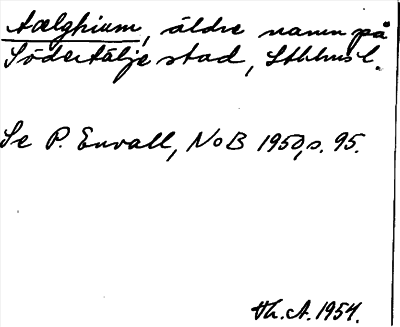 Tælghium, äldre namn på
Södertälje stad, Sthlms l.
Se P. Envall, NoB 1950, s. 95.
Th. A. 1954.